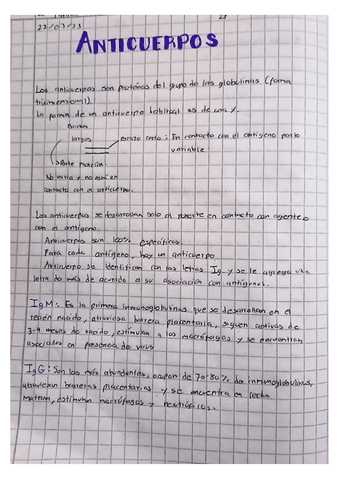 22/03/23
ANTICUERPOS
Los anticuerpos son proteínas del grupo de las globulinas (forma
tridimensional)
La forma de un anticuerpo habitual es de una Y.
largos
corto: En contacto con el antígeno parte
variable
Parte
No varía y no está en
contacto con el antígeno.
Los anticuerpos se desarrollan solo al ponerte en contacto con agente
con el antígeno.
Anticuerpos son 100% específicos.
Para cada antígeno, hay un anticuerpo
Anticuerpo se identifican con las letras Ig y se le agrega una
letra de más de acuerdo a su asociación con antígenos.
IgM: Es la primera inmunoglobulina que se desarrollan en el
recién nacido, atraviesa barrera placentaria, siguen activos de
3-4 meses de nacido, estimulan a los macrófagos y se encuentran
asociados en presencia de virus
IgG: Son los más abundantes, ocupan de 70-80% de inmunoglobulinas,
atraviesan barreras placentarias y se encuentra en leche
materna, estimulan macrófagos y neutrófilos.